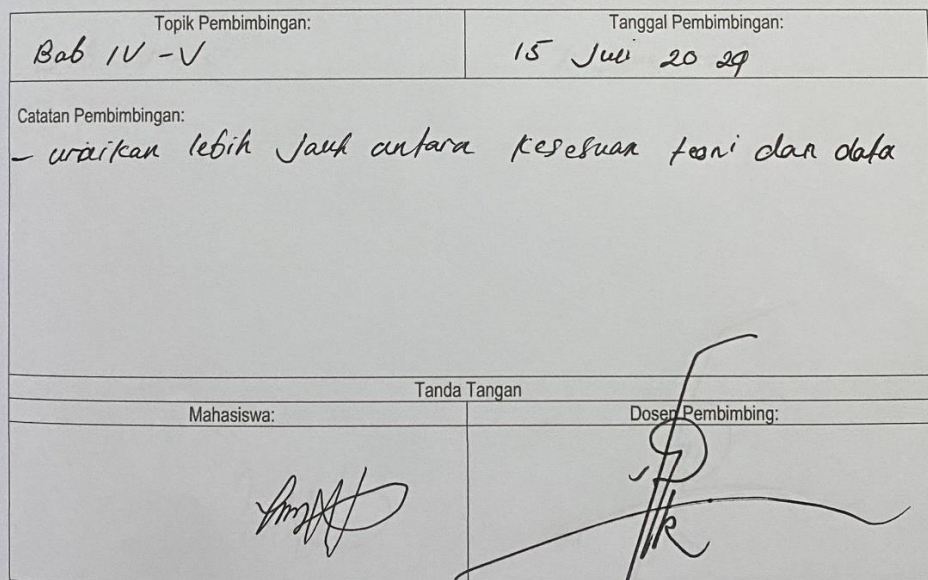 Topik Pembimbingan:
Bab IV - V
Tanggal Pembimbingan:
15 Juli 2024
Catatan Pembimbingan:
- uraikan lebih jauh antara kesesuan teori dan data
Tanda Tangan
Mahasiswa:
Dosen Pembimbing: